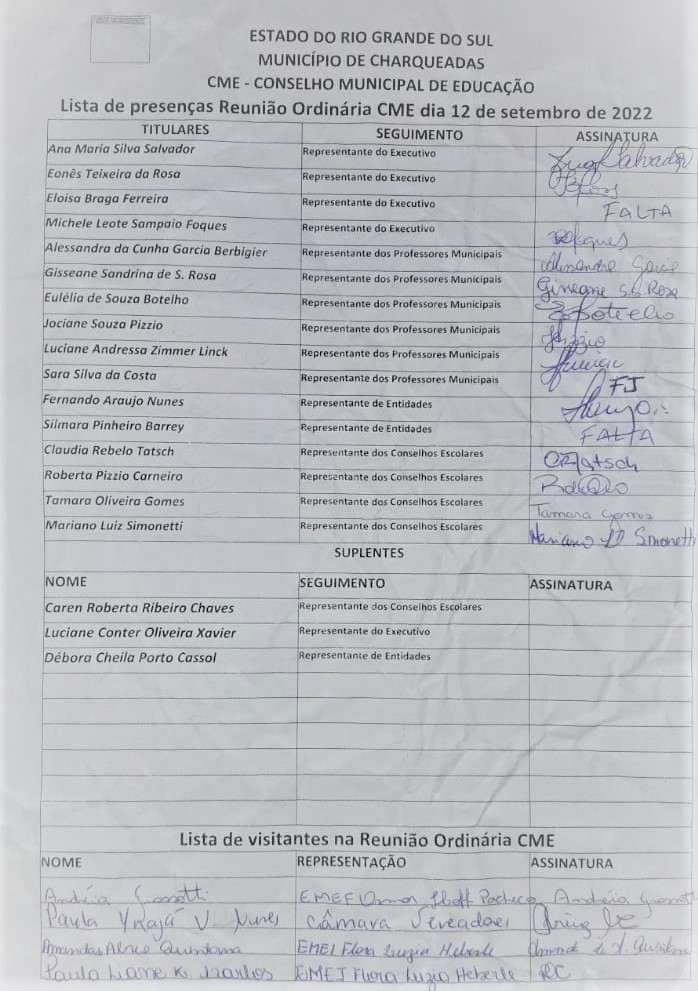 ESTADO DO RIO GRANDE DO SUL
MUNICÍPIO DE CHARQUEADAS
CME - CONSELHO MUNICIPAL DE EDUCAÇÃO
Lista de presenças Reunião Ordinária CME dia 12 de setembro de 2022
TITULARES SEGUIMENTO ASSINATURA
Ana Maria Silva Salvador Representante do Executivo Salvador
Eonês Teixeira da Rosa Representante do Executivo
Eloisa Braga Ferreira Representante do Executivo FALTA
Michele Leote Sampaio Foques Representante do Executivo Foques
Alessandra da Cunha Garcia Berbigier Representante dos Professores Municipais Alessandra Garcia
Gisseane Sandrina de S. Rosa Representante dos Professores Municipais Gisseane S.S. Rosa
Eulélia de Souza Botelho Representante dos Professores Municipais EBotelho
Jociane Souza Pizzio Representante dos Professores Municipais JPizzio
Luciane Andressa Zimmer Linck Representante dos Professores Municipais
Sara Silva da Costa Representante dos Professores Municipais FJ
Fernando Araujo Nunes Representante de Entidades
Silmara Pinheiro Barrey Representante de Entidades FALTA
Claudia Rebelo Tatsch Representante dos Conselhos Escolares CRTatsch
Roberta Pizzio Carneiro Representante dos Conselhos Escolares
Tamara Oliveira Gomes Representante dos Conselhos Escolares Tamara Gomes
Mariano Luiz Simonetti Representante dos Conselhos Escolares Mariano L Simonetti
SUPLENTES
NOME SEGUIMENTO ASSINATURA
Caren Roberta Ribeiro Chaves Representante dos Conselhos Escolares
Luciane Conter Oliveira Xavier Representante do Executivo
Débora Cheila Porto Cassol Representante de Entidades
Lista de visitantes na Reunião Ordinária CME
NOME REPRESENTAÇÃO ASSINATURA
Andréia EMEF Pacheco Andréia
Paula Ynajá V. Nunes Câmara Vereadores
Amanda Quintana EMEI Flora Luzia Heberle
Paula Liane K. EMEI Flora Luzia Heberle